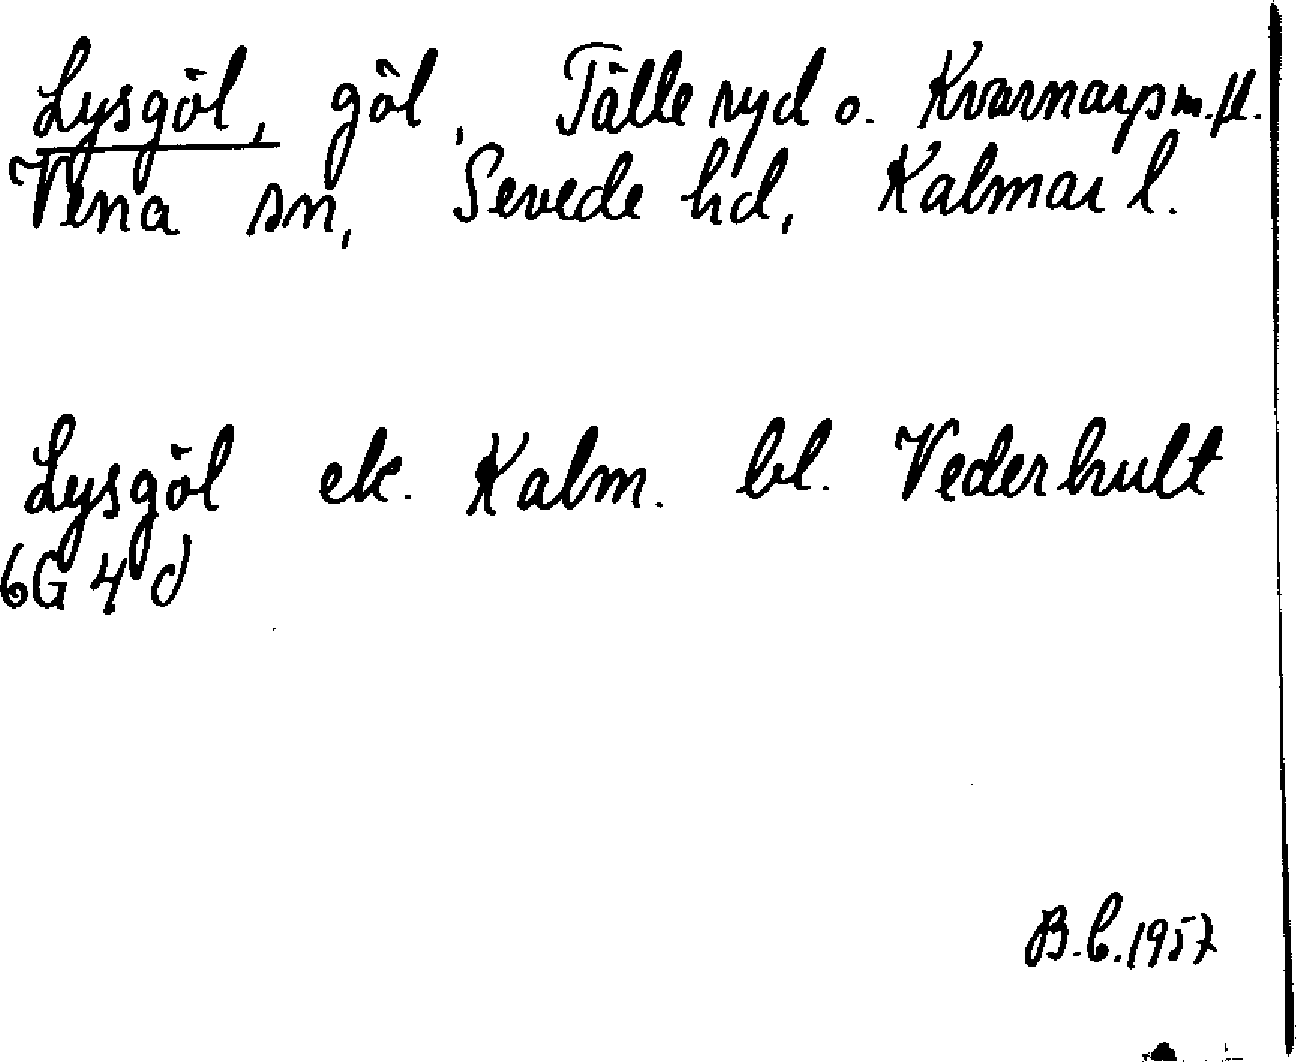 Lysgöl, göl, Tälleryd o. Kvarnarp m.fl.
Vena sn, Sevede hd, Kalmar l.
Lysgöl ek. Kalm. bl. Vederhult
6G 4 d
B.C. 1957